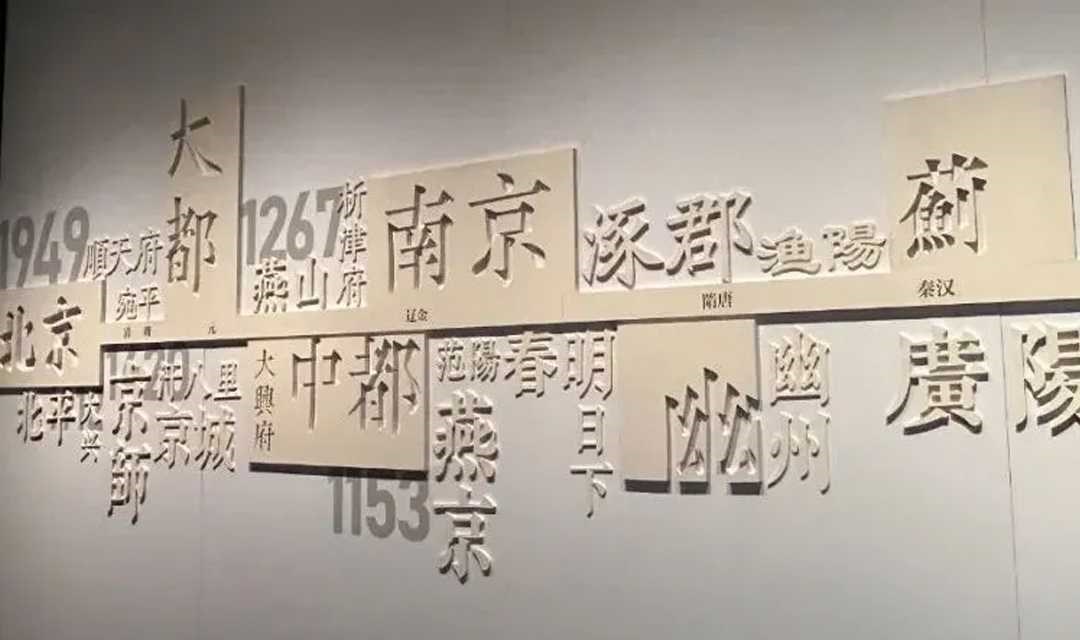 大都
1949
順天府
宛平
1267
析津府
燕山
南京
涿郡
渔陽
薊
北京
清 明
元
辽金
隋唐
秦汉
北平
大兴
1420
京師
京城
八里
大興府
中都
1153
范陽
燕京
春明
日下
幽
幽州
廣陽